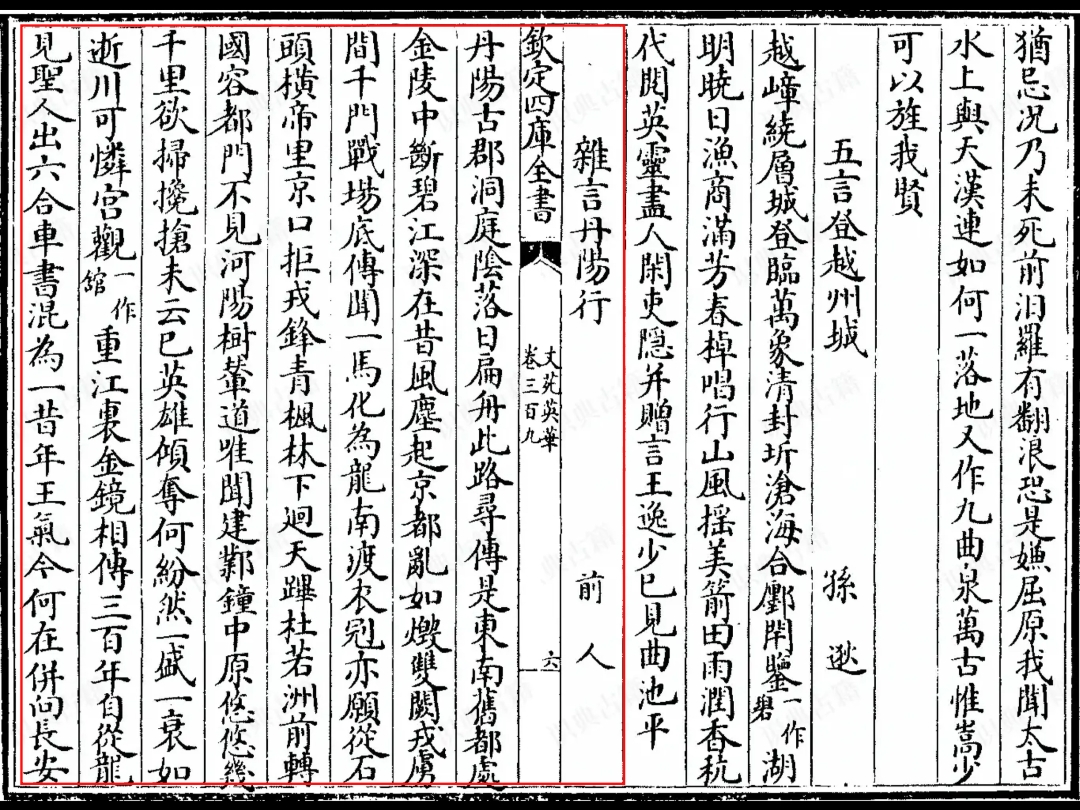 猶忌况乃未死前汨羅有翻浪恐是嫌屈原我聞太古
水上與天漢連如何一落地又作九曲泉萬古惟嵩少
可以旌我賢
五言登越州城 孫逖
越嶂繞層城登臨萬象清封圻滄海合鄽閈鑒一作碧湖
明曉日漁商滿芳春棹唱行山風揺美箭田雨潤香秔
代閱英靈盡人閑吏隱并贈言王逸少已見曲池平
雜言丹陽行 前人
欽定四庫全書 文苑英華卷三百九 六
丹陽古郡洞庭陰落日扁舟此路尋傳是東南舊都處
金陵中斷碧江深在昔風塵起京都亂如燬雙闕戎虜
間千門戰場底傳聞一馬化為龍南渡衣冠亦願從石
頭横帝里京口拒戎鋒青楓林下廻天蹕杜若洲前轉
國容都門不見河陽樹輦道唯聞建鄴鐘中原悠悠幾
千里欲掃攙搶未云已英雄傾奪何紛然一盛一衰如
逝川可憐宮觀一作館重江裏金鏡相傳三百年自從龍
見聖人出六合車書混為一昔年王氣今何在併向長安